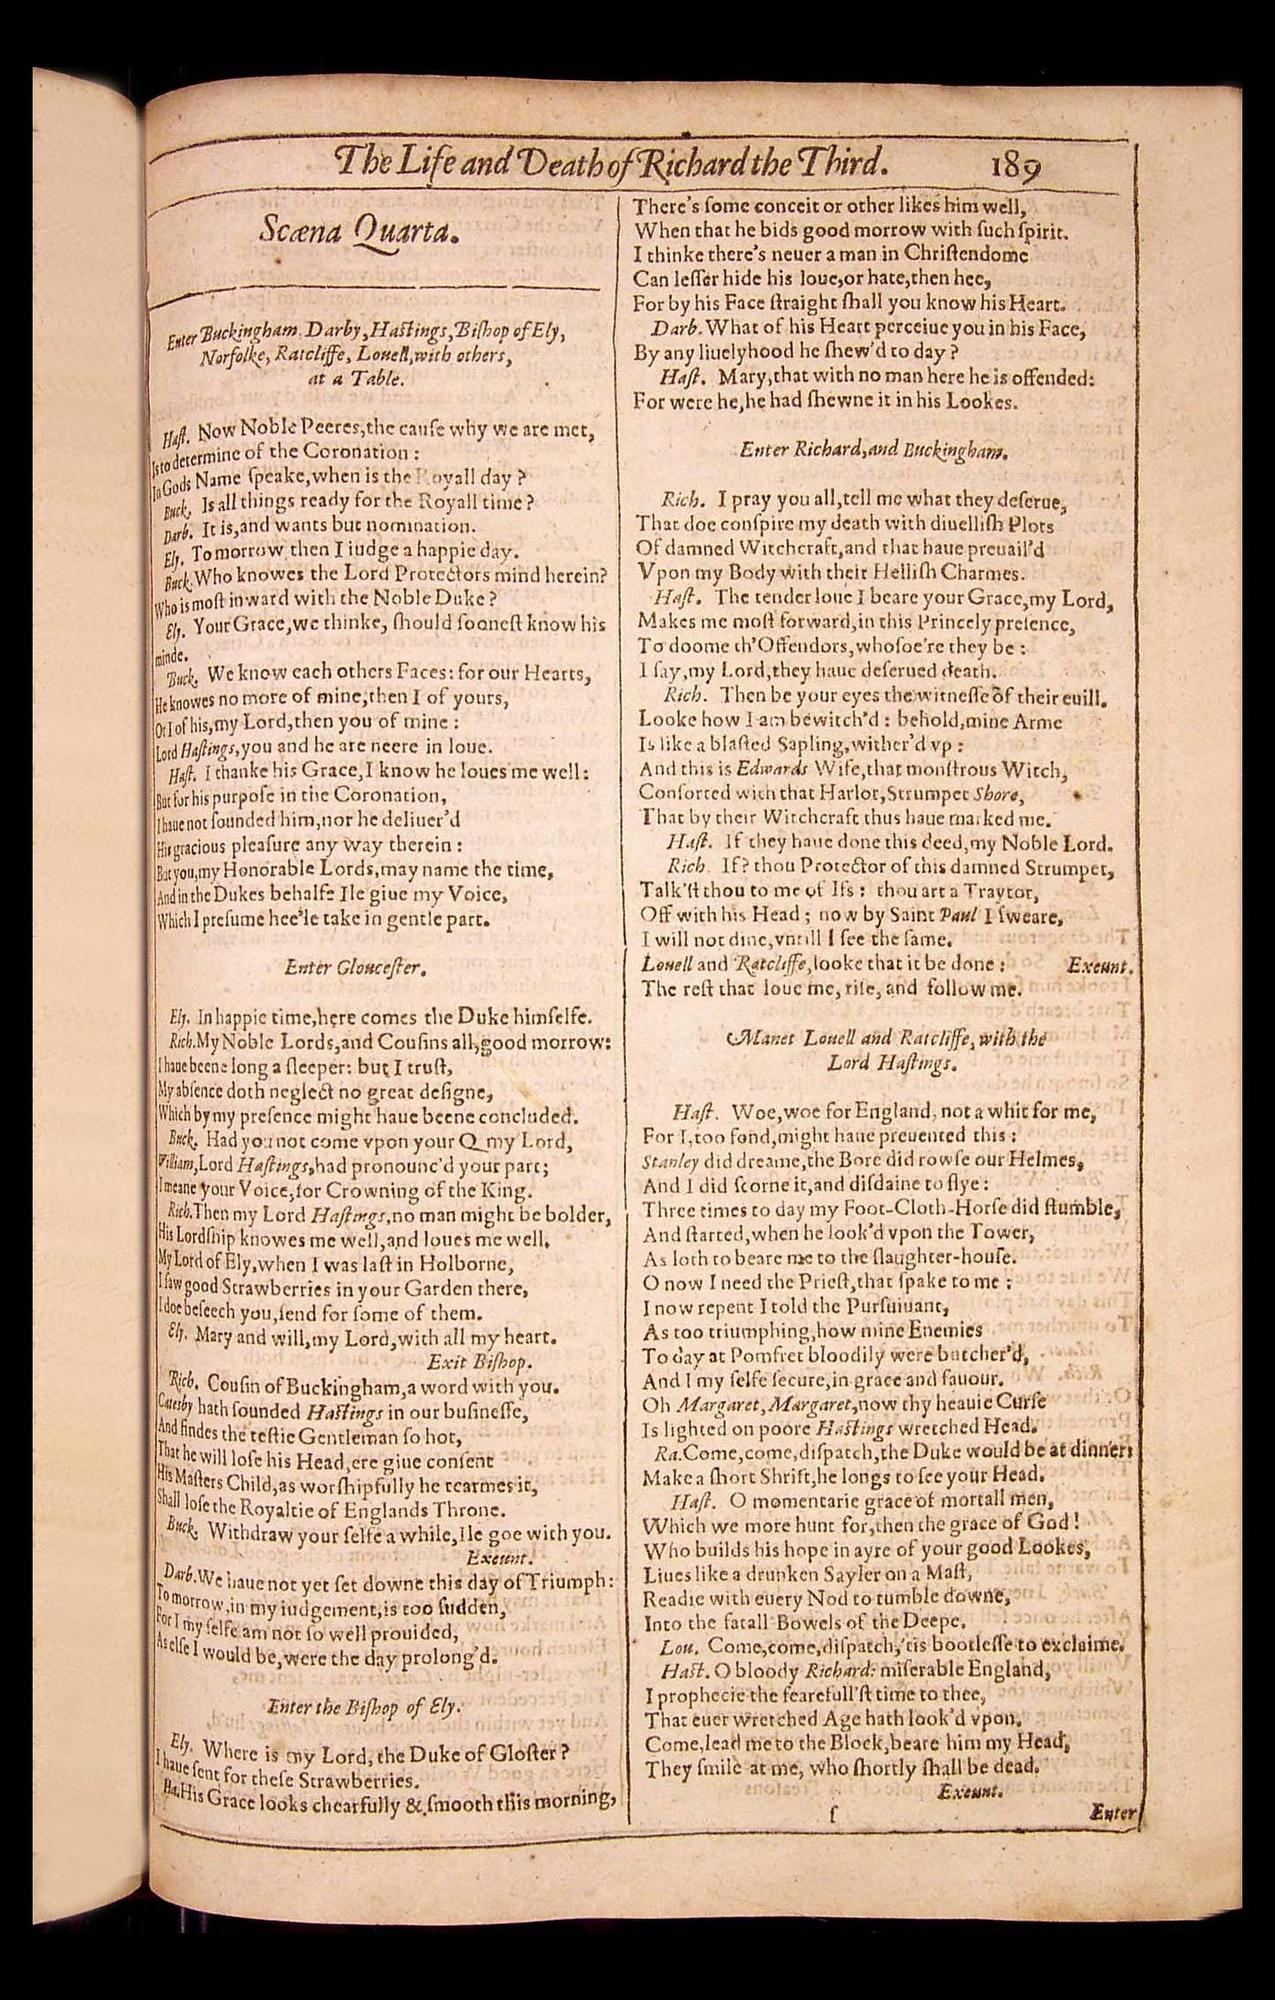 The Life and Death of Richard the Third. 189
Scæna Quarta.
Enter Buckingham, Darby, Hastings, Bishop of Ely,
Norfolke, Ratcliffe, Louell, with others,
at a Table.
Hast. Now Noble Peeres, the cause why we are met,
Is to determine of the Coronation:
In Gods Name speake, when is the Royall day?
Buck. Is all things ready for the Royall time?
Darb. It is, and wants but nomination.
Ely. To morrow then I iudge a happie day.
Buck. Who knowes the Lord Protectors mind herein?
Who is most inward with the Noble Duke?
Ely. Your Grace, we thinke, should soonest know his
minde.
Buck. We know each others Faces: for our Hearts,
He knowes no more of mine, then I of yours,
Or I of his, my Lord, then you of mine:
Lord Hastings, you and he are neere in loue.
Hast. I thanke his Grace, I know he loues me well:
But for his purpose in the Coronation,
I haue not sounded him, nor he deliuer'd
His gracious pleasure any way therein:
But you, my Honorable Lords, may name the time,
And in the Dukes behalfe Ile giue my Voice,
Which I presume hee'le take in gentle part.
Enter Gloucester.
Ely. In happie time, here comes the Duke himselfe.
Rich. My Noble Lords, and Cousins all, good morrow:
I haue beene long a sleeper: but I trust,
My absence doth neglect no great designe,
Which by my presence might haue beene concluded.
Buck. Had you not come vpon your Q my Lord,
William, Lord Hastings, had pronounc'd your part;
I meane your Voice, for Crowning of the King.
Rich. Then my Lord Hastings, no man might be bolder,
His Lordship knowes me well, and loues me well.
My Lord of Ely, when I was last in Holborne,
I saw good Strawberries in your Garden there,
I doe beseech you, send for some of them.
Ely. Mary and will, my Lord, with all my heart.
Exit Bishop.
Rich. Cousin of Buckingham, a word with you.
Catesby hath sounded Hastings in our businesse,
And findes the testie Gentleman so hot,
That he will lose his Head, ere giue consent
His Masters Child, as worshipfully he tearmes it,
Shall lose the Royaltie of Englands Throne.
Buck. Withdraw your selfe a while, Ile goe with you.
Exeunt.
Darb. We haue not yet set downe this day of Triumph:
To morrow, in my iudgement, is too sudden,
For I my selfe am not so well prouided,
As else I would be, were the day prolong'd.
Enter the Bishop of Ely.
Ely. Where is my Lord, the Duke of Gloster?
I haue sent for these Strawberries.
Ha. His Grace looks chearfully & smooth this morning,
There's some conceit or other likes him well,
When that he bids good morrow with such spirit.
I thinke there's neuer a man in Christendome
Can lesser hide his loue, or hate, then hee,
For by his Face straight shall you know his Heart.
Darb. What of his Heart perceiue you in his Face,
By any liuelyhood he shew'd to day?
Hast. Mary, that with no man here he is offended:
For were he, he had shewne it in his Lookes.
Enter Richard, and Buckingham.
Rich. I pray you all, tell me what they deserue,
That doe conspire my death with diuellish Plots
Of damned Witchcraft, and that haue preuail'd
Vpon my Body with their Hellish Charmes.
Hast. The tender loue I beare your Grace, my Lord,
Makes me most forward, in this Princely presence,
To doome th'Offendors, whosoe're they be:
I say, my Lord, they haue deserued death.
Rich. Then be your eyes the witnesse of their euill.
Looke how I am bewitch'd: behold, mine Arme
Is like a blasted Sapling, wither'd vp:
And this is Edwards Wife, that monstrous Witch,
Consorted with that Harlot, Strumpet Shore,
That by their Witchcraft thus haue marked me.
Hast. If they haue done this deed, my Noble Lord.
Rich. If? thou Protector of this damned Strumpet,
Talk'st thou to me of Ifs: thou art a Traytor,
Off with his Head; now by Saint Paul I sweare,
I will not dine, vntill I see the same.
Louell and Ratcliffe, looke that it be done: Exeunt.
The rest that loue me, rise, and follow me.
Manet Louell and Ratcliffe, with the
Lord Hastings.
Hast. Woe, woe for England, not a whit for me,
For I, too fond, might haue preuented this:
Stanley did dreame, the Bore did rowse our Helmes,
And I did scorne it, and disdaine to flye:
Three times to day my Foot-Cloth-Horse did stumble,
And started, when he look'd vpon the Tower,
As loth to beare me to the slaughter-house.
O now I need the Priest, that spake to me:
I now repent I told the Pursuiuant,
As too triumphing, how mine Enemies
To day at Pomfret bloodily were butcher'd,
And I my selfe secure, in grace and fauour.
Oh Margaret, Margaret, now thy heauie Curse
Is lighted on poore Hastings wretched Head.
Ra. Come, come, dispatch, the Duke would be at dinner:
Make a short Shrift, he longs to see your Head.
Hast. O momentarie grace of mortall men,
Which we more hunt for, then the grace of God!
Who builds his hope in ayre of your good Lookes,
Liues like a drunken Sayler on a Mast,
Readie with euery Nod to tumble downe,
Into the fatall Bowels of the Deepe.
Lou. Come, come, dispatch, 'tis bootlesse to exclaime.
Hast. O bloody Richard: miserable England,
I prophecie the fearefull'st time to thee,
That euer wretched Age hath look'd vpon.
Come, lead me to the Block, beare him my Head,
They smile at me, who shortly shall be dead.
Exeunt.
f Enter